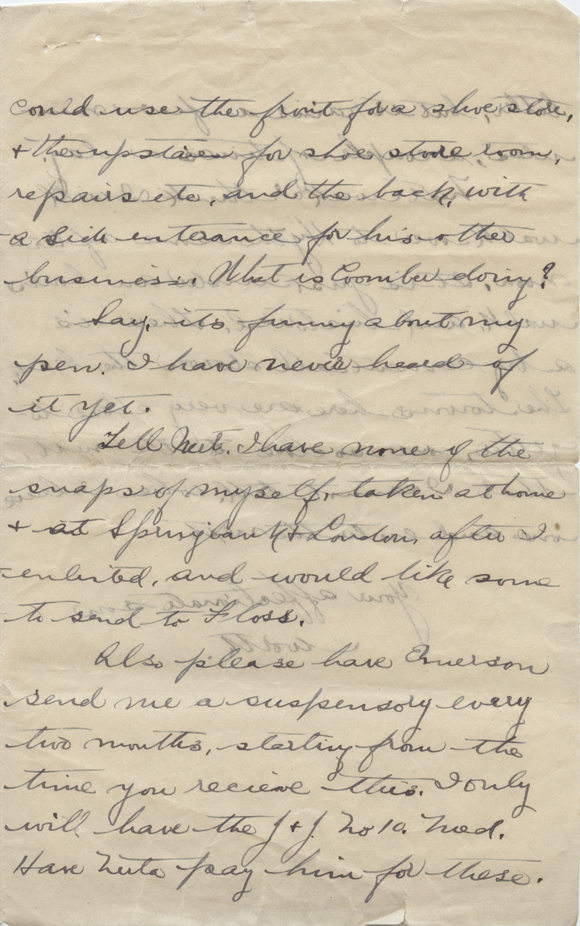 could use the front for a shoe store,
+ the upstairs for shoe store room,
repairs etc, and the back, with
a side enterance for his other
business. What is Coombe doing?
Say, its funny about my
pen. I have never heard of
it yet.
Tell Neit. I have none of the
snaps of myself, taken at home
+ at Springbank + London, after I
enlisted, and would like some
to send to Floss.
Also please have Emerson
send me a suspensory every
two months, starting from the
time you recieve this. I only
will have the J + J. No 10. Med.
Have Neita pay him for these.